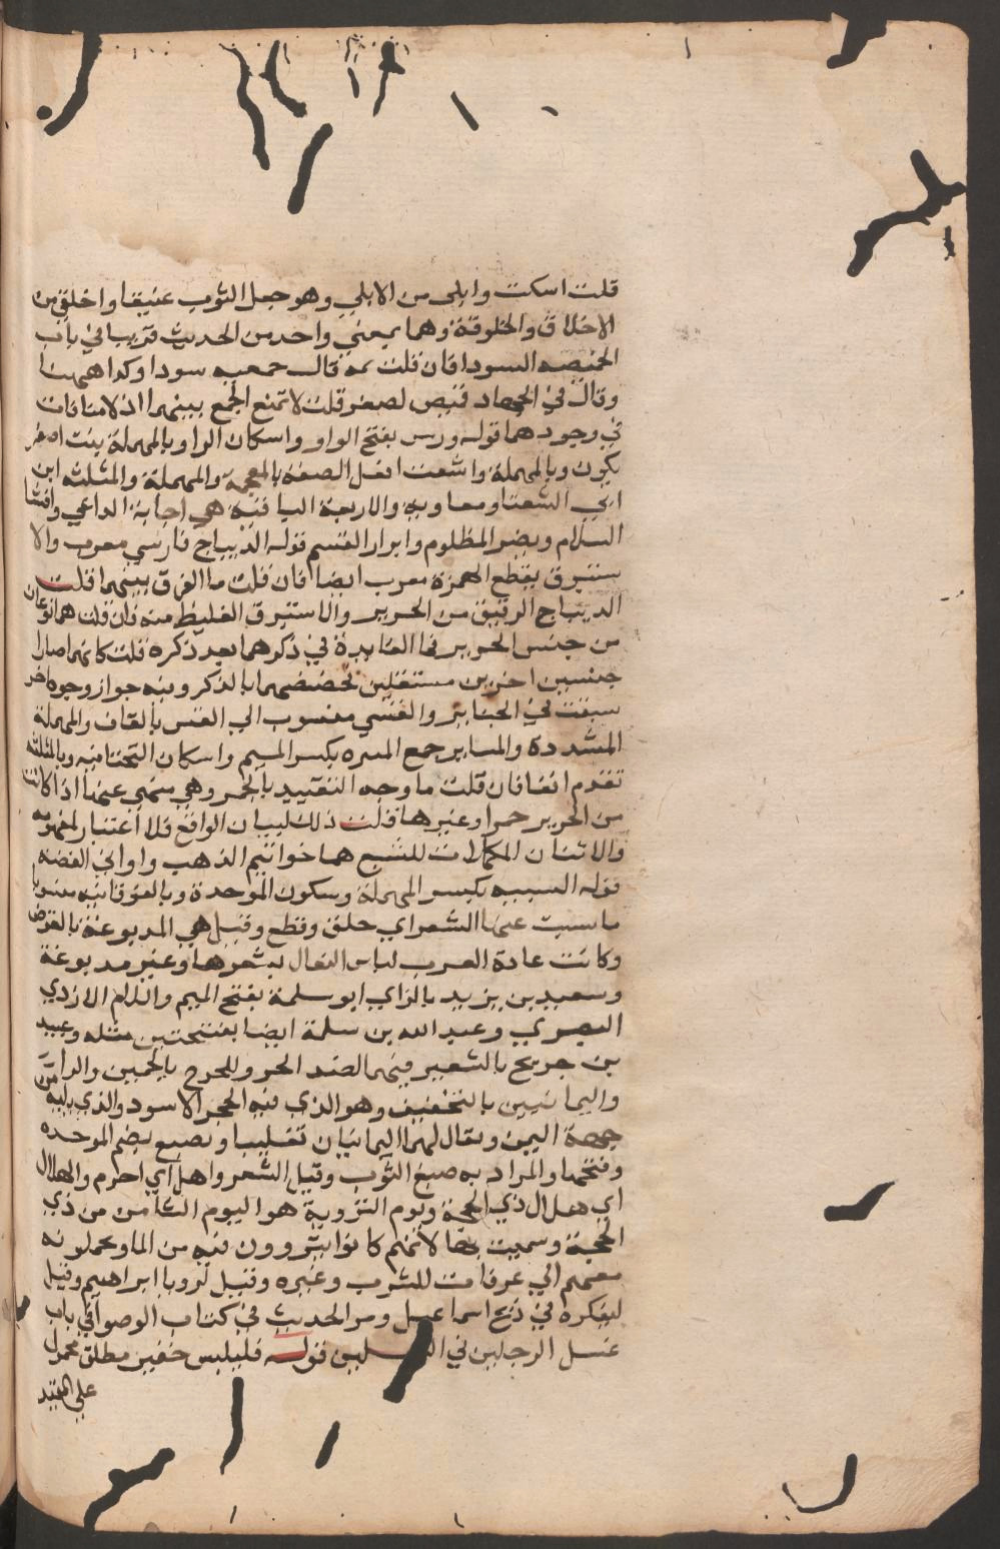 قلت اسكت وابلي من الابلي وهو جعل الثوب عتيقا واخلقي من
الاخلاق والخلوقة وهما بمعني واحد من الحديث قريبا في باب
الخميصه السودا فان قلت ثمه قال خميصه سودا وكذا ههنا
وقال في الجهاد قميص اصفر قلت لا تمنع الجمع بينهما اذ لا منافات
في وجودهما قوله ورس بفتح الواو واسكان الرا وبالمهملة نبت اصفر
يكون وبالمهملة واشعث افعل الصفة بالمعجمه والمهملة والمثلثه ابن
ابي الشعثا ومعاويه والاربعة الباقية هي اجابة الداعي وافشا
السلام ونصر المظلوم وابرار القسم قوله الديباج فارسي معرب والا
ستبرق بقطع الهمزة معرب ايضا فان قلت ما الفرق بينهما قلت
الديباج الرقيق من الحرير والاستبرق الغليظ منه فان قلت هما نوعان
من جنس الحرير فما الفايدة في ذكرهما بعد ذكره قلت كانهما صارا
جنسين اخرين مستقلين تخصصهما بالذكر وفيه جواز وجوه اخر
سبقت في الجنايز والقسي منسوب الي القس بالقاف والمهملة
المشددة والمياثر جمع الميثره بكسر الميم واسكان التحتانيه وبالمثلثه
تقدم انفا فان قلت ما وجه التقييد بالحمر وهي منهي عنها اذا كانت
من الحرير حمرا وغيرها قلت ذلك لبيان الواقع فلا اعتبار لمفهومه
والاثنان المكملات للسبع هما خواتيم الذهب واواني الفضه
قوله السبتيه بكسر المهملة وسكون الموحدة وبالفوقانيه منسوبا
ما سبت عنها الشعر اي حلق وقطع وقيل هي المدبوغة بالقرض
وكانت عادة العرب لباس النعال بشعرها وغير مدبوغة
وسعيد بن يزيد بالزاي ابو سلمة بفتح الميم واللام الازدي
البصري وعبد الله بن سلمة ايضا بفتحتين مثله وعبيد
بن جريج بالتصغير فيهما لضد الحر وللحرج بالجيمين والراء
واليمانيين بالتخفيف وهو الذي فيه الحجر الاسود والذي يليه من
جهة اليمن ويقال لهما اليمانيان تغليبا ويصبغ بضم الموحده
وفتحها والمراد به صبغ الثوب وقيل الشعر واهل اي احرم والهلال
اي هلال ذي الحجة ويوم التروية هو اليوم الثامن من ذي
الحجة وسميت بها لانهم كانوا يتروون فيه من الما ويحملونه
معهم الي عرفات للشرب وغيره وقيل لرويا ابراهيم وقيل
لتفكره في ذبح اسماعيل ومر الحديث في كتاب الوضوا في باب
غسل الرجلين في النعلين قوله فليلبس خفين مطلق محمول
علي المقيد